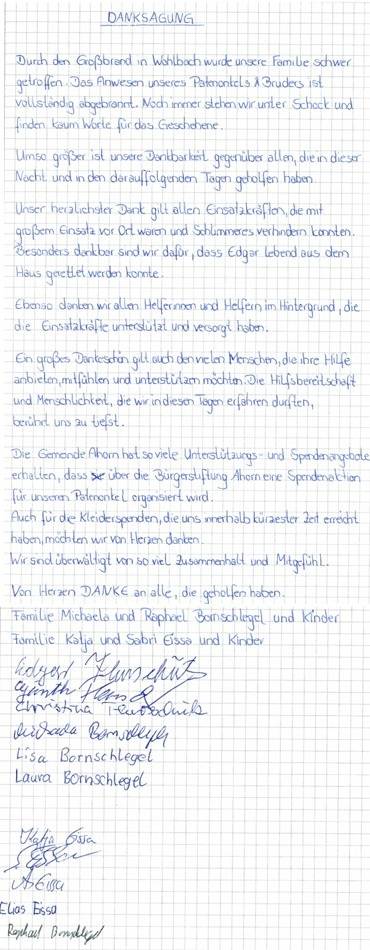 DANKSAGUNG
Durch den Großbrand in Wohlbach wurde unsere Familie schwer
getroffen. Das Anwesen unseres Patenonkels & Bruders ist
vollständig abgebrannt. Noch immer stehen wir unter Schock und
finden kaum Worte für das Geschehene.
Umso größer ist unsere Dankbarkeit gegenüber allen, die in dieser
Nacht und in den darauffolgenden Tagen geholfen haben.
Unser herzlichster Dank gilt allen Einsatzkräften, die mit
großem Einsatz vor Ort waren und Schlimmeres verhindern konnten.
Besonders dankbar sind wir dafür, dass Edgar lebend aus dem
Haus gerettet werden konnte.
Ebenso danken wir allen Helferinnen und Helfern im Hintergrund, die
die Einsatzkräfte unterstützt und versorgt haben.
Ein großes Dankeschön gilt auch den vielen Menschen, die ihre Hilfe
anbieten, mitfühlen und unterstützen möchten. Die Hilfsbereitschaft
und Menschlichkeit, die wir in diesen Tagen erfahren durften,
berührt uns zu tiefst.
Die Gemeinde Ahorn hat so viele Unterstützungs- und Spendenangebote
erhalten, dass über die Bürgerstiftung Ahorn eine Spendenaktion
für unseren Patenonkel organisiert wird.
Auch für die Kleiderspenden, die uns innerhalb kürzester Zeit erreicht
haben, möchten wir von Herzen danken.
Wir sind überwältigt von so viel Zusammenhalt und Mitgefühl.
Von Herzen DANKE an alle, die geholfen haben.
Familie Michaela und Raphael Bornschlegel und Kinder
Familie Katja und Sabri Eissa und Kinder
Christina
Michaela Bornschlegel
Lisa Bornschlegel
Laura Bornschlegel
Katja Eissa
A. Eissa
Elias Eissa
Raphael Bornschlegel